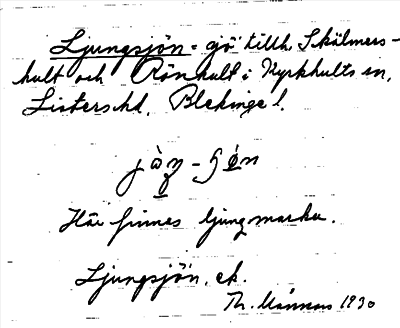 Ljungsjön = sjö tillh. Skälmers-
hult och Rönhult i Kyrkhults sn,
Listers hd, Blekinge l.
Här finnes ljungmarker.
Ljungsjön, ek.
Th. 1930